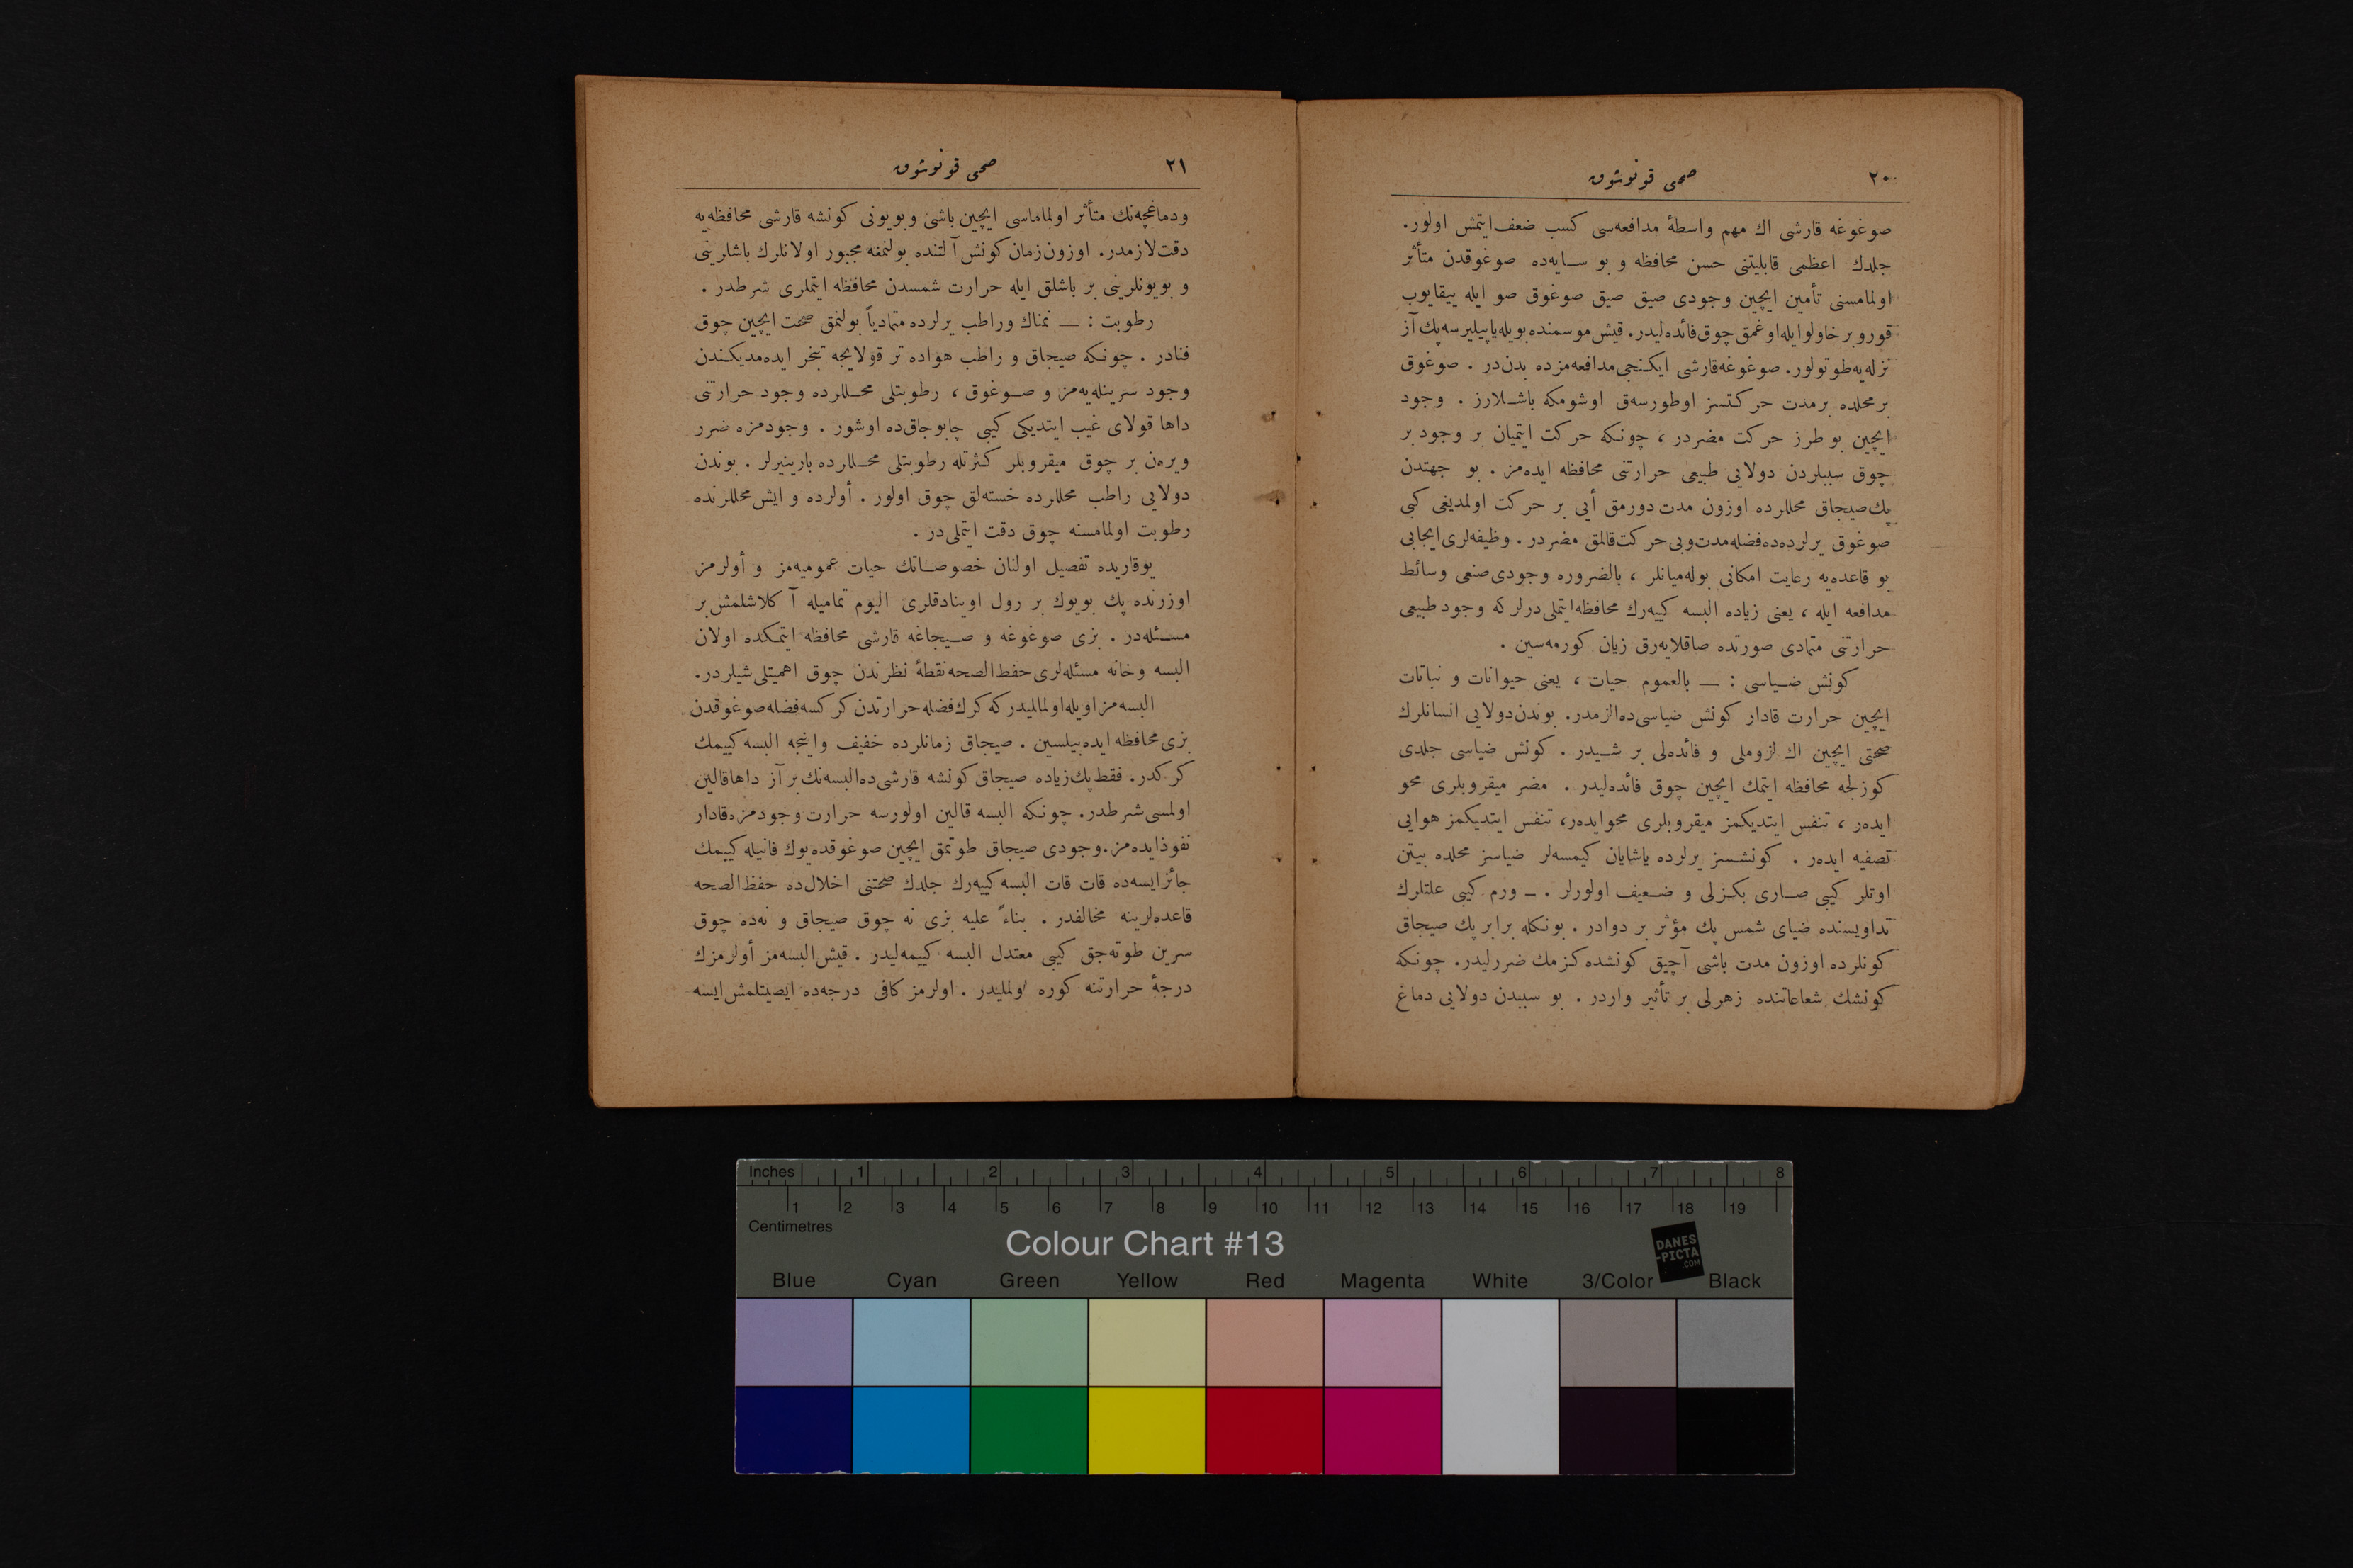 ٢٠
صحی قونوشوق
صوغوغه قارشی اك مهم واسطهٔ مدافعه‌سی كسب ضعف ایتمش اولور.
جلدك اعظمی قابلیتنی حسن محافظه و بو سـایه‌ده صوغوقدن متأثر
اولمامسنی تأمین ایچین وجودی صیق صیق صوغوق صو ایله ییقایوب
قورو بر خاولو ایله اوغمق چوق فائده‌لیدر. قیش موسمنده بویله یاپیلیرسه پك آز
نزله‌یه طوتولور. صوغوغه قارشی ایكنجی مدافعه‌مزده بدن‌در . صوغوق
بر محلده بر مدت حركتسز اوطورسه‌ق اوشومكه باشـلارز . وجود
ایچین بو طرز حركت مضردر ، چونكه حركت ایتمیان بر وجود بر
چوق سببلردن دولایی طبیعی حرارتنی محافظه ایده‌مز . بو جهتدن
پك صیجاق محللرده اوزون مدت دورمق أیی بر حركت اولمدیغی كبی
صوغوق یرلرده‌ده فضله مدت و بی حركت قالمق مضردر . وظیفه‌لری ایجابی
بو قاعده‌یه رعایت امكانی بوله‌میانلر ، بالضروره وجودی صنعی وسائط
مدافعه ایله ، یعنی زیاده البسه كییه‌رك محافظه ایتملی‌درلر كه وجود طبیعی
حرارتنی متمادی صورتده صاقلایه‌رق زیان كورمه‌سین .
كونش ضـیاسی : — بالعموم حیات ، یعنی حیوانات و نباتات
ایچین حرارت قادار كونش ضیاسی‌ده الزمدر. بوندن دولایی انسانلرك
صحتی ایچین اك لزوملی و فائده‌لی بر شـیدر . كونش ضیاسی جلدی
كوزلجه محافظه ایتمك ایچین چوق فائده‌لیدر . مضر میقروبلری محو
ایده‌ر ، تنفس ایتدیكمز میقروبلری محو ایده‌ر، تنفس ایتدیكمز هوایی
تصفیه ایده‌ر . كونشـسز یرلرده یاشایان كیمسه‌لر ضیاسز محلده بیتن
اوتلر كیبی صـاری بكـزلی و ضـعیف اولورلر . ـ ورم كیبی علتلرك
تداویسنده ضیای شمس پك مؤثر بر دوادر . بونكله برابر پك صیجاق
كونلرده اوزون مدت باشی آچیق كونشده كزمك ضررلیدر. چونكه
كونشك شعاعاتنده زهرلی بر تأثیر واردر . بو سببدن دولایی دماغ
٢١
صحی قونوشوق
ودماغچه‌نك متأثر اولماماسی ایچین باشی و بویونی كونشه قارشی محافظه‌یه
دقت لازمدر. اوزون زمان كونش آلتنده بولنمغه مجبور اولانلرك باشلرینی
و بویونلرینی بر باشلق ایله حرارت شمسدن محافظه ایتملری شرطدر .
رطوبت : — نمناك وراطب یرلرده متمادیاً بولنمق صحت ایچین چوق
فنادر . چونكه صیجاق و راطب هواده تر قولایجه تبخر ایده‌مدیكـندن
وجود سرینله‌یه‌مز و صـوغوق ، رطوبتلی محـللرده وجود حرارتنی
داها قولای غیب ایتدیكی كیبی چابوجاق‌ده اوشور . وجودمزه ضرر
ویره‌ن بر چوق میقروبلر كثرتله رطوبتلی محـللرده بارینیرلر . بوندن
دولایی راطب محللرده خسته‌لق چوق اولور . أولرده و ایش محللرنده
رطوبت اولمامسنه چوق دقت ایتملی‌در .
یوقاریده تفصیل اولنان خصوصـاتك حیات عمومیه‌مز و أولرمز
اوزرنده پك بویوك بر رول اوینادقلری الیوم تمامیله آكلاشلمش بر
مسـئله‌در . بزی صوغوغه و صـیجاغه قارشی محافظه ایتمكده اولان
البسه وخانه مسئله‌لری حفظ الصحه نقطهٔ نظرندن چوق اهمیتلی شیلردر.
البسه‌مز اویله اولمالیدر كه كرك فضله حرارتدن كركسه فضله صوغوقدن
بزی محافظه ایده‌بیلسین . صیجاق زمانلرده خفیف واینجه البسه كییمك
كركدر. فقط پك زیاده صیجاق كونشه قارشی‌ده البسه‌نك بر آز داها قالین
اولمسی شرطدر. چونكه البسه قالین اولورسه حرارت وجودمزه قادار
نفوذ ایده‌مز. وجودی صیجاق طوتمق ایچین صوغوقده یوك فانیله كییمك
جائز ایسه‌ده قات قات البسه كییه‌رك جلدك صحتنی اخلال‌ده حفظ الصحه
قاعده‌لرینه مخالفدر . بناءً علیه بزی نه چوق صیجاق و نه‌ده چوق
سرین طوته‌جق كیبی معتدل البسه كییمه‌لیدر . قیش البسه‌مز أولرمزك
درجهٔ حرارتنه كوره اولملیدر . اولرمز كافی درجه‌ده ایصیتلمش ایسه
Inches 1 2 3 4 5 6 7 8
1 2 3 4 5 6 7 8 9 10 11 12 13 14 15 16 17 18 19
Centimetres
Colour Chart #13
DANES
-PICTA
.COM
Blue Cyan Green Yellow Red Magenta White 3/Color Black